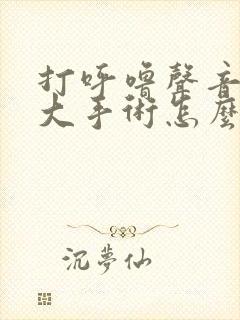 打呼嚕聲音
大手術怎麼
沉夢仙